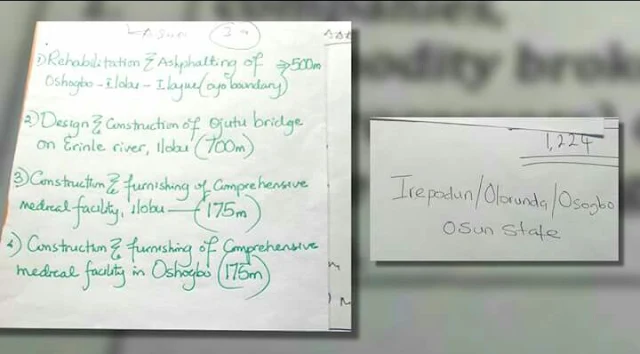 Osun 3a
1) Rehabilitation & Ashphalting of → 500m
Oshogbo - Ilobu - Ilayue (oyo boundary)
2) Design & Construction of Ojutu bridge
on Erinle river, Ilobu (700m)
3) Construction & furnishing of Comprehensive
medical facility, ilobu — (175m)
4) Construction & furnishing of Comprehensive
medical facility in Oshogbo (175m)
1,224
Irepodun/Olorunda/Osogbo
Osun State